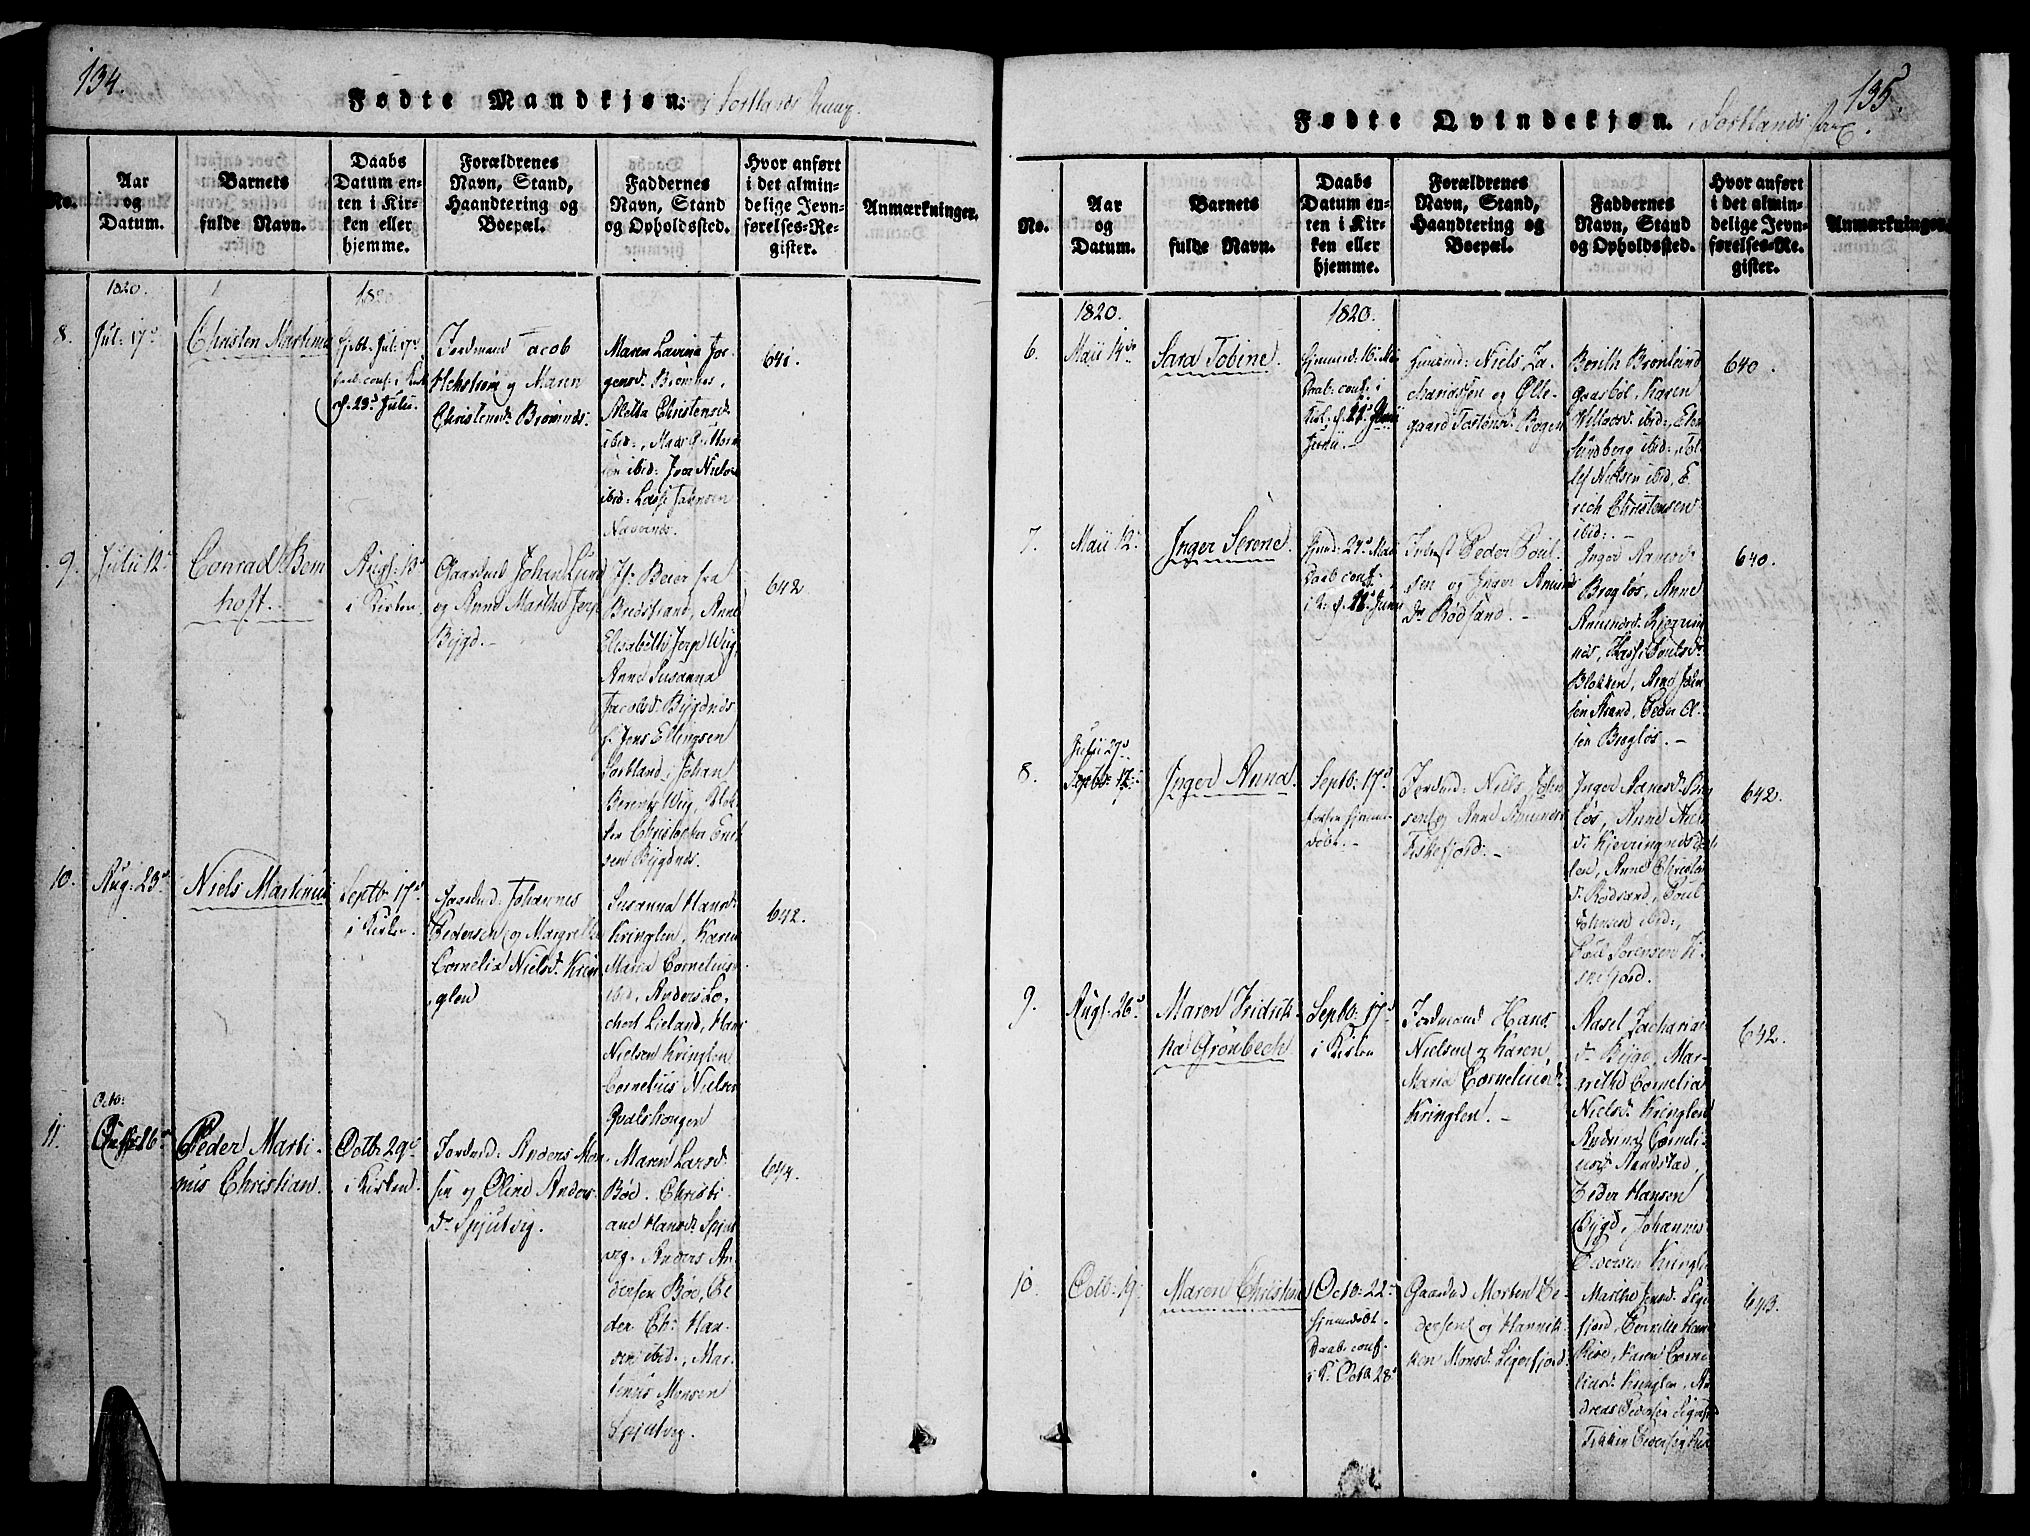 134.
Fødte Mandkjøn. i Sortlands
No.
Aar
og
Datum.
Barnets
fulde Navn.
Daabs
Datum en-
ten i Kir-
ken eller
hjemme.
Forældrenes
Navn, Stand,
Haandtering og
Boepæl.
Faddernes
Navn, Stand
og Opholdssted.
Hvor anført
i det almin-
delige Jevn-
førelses-Re-
gister.
Anmærkninger.
1820.
1820
8.
Jul: 17d
Christen Martinus
Jul: 17d
d. 23d Julii.
Jordmand Jacob
Hekstrøm og Maren
Christensd. Bromnes.
Maren Lavina Jør-
gensd. Bromnes,
Metta Christensd.
ibid:, Mads P. Mor-
sen ibid: Iver Nielsen
ibid: Lassi Johnsen
641.
9.
Julii 12d
Conrad Bem
hoft.
Aug: 13d
i Kirken.
Gaardmd Johan Lund
og Anne Martha Jersp
Bygd.
Hr. Beier fra
Bredstrand, Anne
Elisabeth Jersp Wiig,
Anne Susanna
Jacobsd. Bygdnes
S. Jens Ellingsen
Sortland, Johan
Berentz Wiig, Klok-
ker Christopher Erik
sen Bygdnes.
642
10.
Aug: 23d
Niels Martinus
Septb: 17d
i Kirken.
Gaardmd: Johannes
Pedersen og Margrethe
Cornelia Nielsd. Krin-
glen
Susanna Hansd.
Kringlen, Karen
Maria Corneliusd.
ibid, Anders Lo-
chert Lieland, Hans
Nielsen Kringlen
Cornelius Nielsen
Qvalshaugen
642.
11.
Octo:
16d
Peder Marti-
nus Christian.
Octb: 29d
i Kirken.
Jordmd: Anders Mon-
sen og Oline Anders-
dr. Spjutvig.
Maren Larsd.
Bøe. Christi-
ane Hansd. Spjut
vig. Anders An-
dersen Bøe, Pe-
der Chr. Han-
sen ibid., Mar-
tinus Monsen
Spjutvig.
644.
135.
Fødte Qvindekjøn. i Sortlands
No.
Aar
og
Datum.
Barnets
fulde Navn.
Daabs
Datum en-
ten i Kir-
ken eller
hjemme.
Forældrenes
Navn, Stand,
Haandtering og
Boepæl.
Faddernes
Navn, Stand
og Opholdssted.
Hvor anført
i det almin-
delige Jevn-
førelses-Re-
gister.
Anmærkninger.
1820.
1820.
6.
Maii 14de
Sara Tobine.
16. Maii
Daab: conf: i
Junii.
Huusmd: Niels Za-
chariassen og Olle-
gaard Tostensd. Bogen
Berith Brønlund
Karen
Willasd. ibid:,
Lundberg ibid:, Tol-
lef Nielsen ibid, E-
rich Christensen
ibid:.
640.
7.
Maii 12.
Inger Serene.
24d Maii
Daab conf:
i K: d. 11d Junii
Inderst Peder Poul-
sen og Inger Amund
dr. Rødsand.
Inger Aanesd.
Bregløs, Anne
Amundsd. Kjerring
nes, Lassi Poulsd.
Blokken, Arne John
sen Strand, Peder Ol-
sen Bregløs.
640.
8.
Julii 29d
Septbr 12.
Inger Anna.
Septb: 17d
forhen hjemme-
døbt.
Jordmd: Niels John
sen og Anne Amunds
Fiskefjord.
Inger Aanesd. Breg
løs, Anne Niels
d. Kjerringnesdal-
len, Anne Christens
d. Rødsand, Poul
Johnsen ibid:,
Poul Sørensen Fi-
skefjord.
642.
9.
Augs. 26d
Maren Fridrik-
ka Grønbech
Septb: 17d
i Kirken
Jordmand Hans
Nielsen og Karen
Maria Corneliusd.
Kringlen.
Aasel Zacharias
d. Bygd, Mar-
grethe Cornelia
Nielsd. Kringlen
Andrina Corneli-
usd. Sandstad,
Peder Hansen
Bygd, Johannes
Pedersen Kringlen
642.
10.
Octb: 19.
Maren Christine
Octb: 22.
hjemmedøbt.
Daab: conf:
i K: Octb 28d
Gaardmd Morten Pe-
dersen og Hannik-
ken Monsd. Sigerfjord.
Marthe Jensd. Siger
fjord, Pernille Hans
Karen Corne-
liusd. Kringlen, An-
dreas Pedersen Sigerfjord
643.